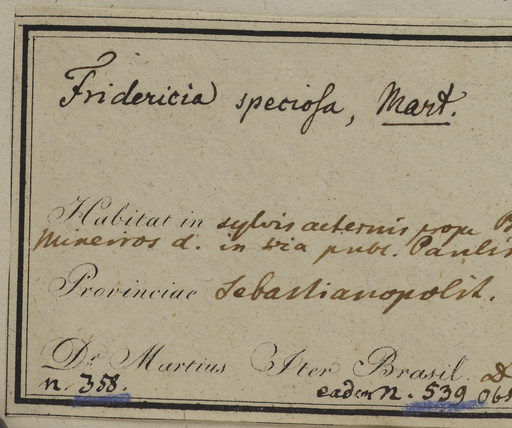 Fridericia speciosa, Mart.
Habitat in sylvis aeternis prope
Mineiros d. in via publ.
Provinciae Sebastianopolit.
Dr Martius Iter Brasil.
n. 358. eadem n. 539 Obs